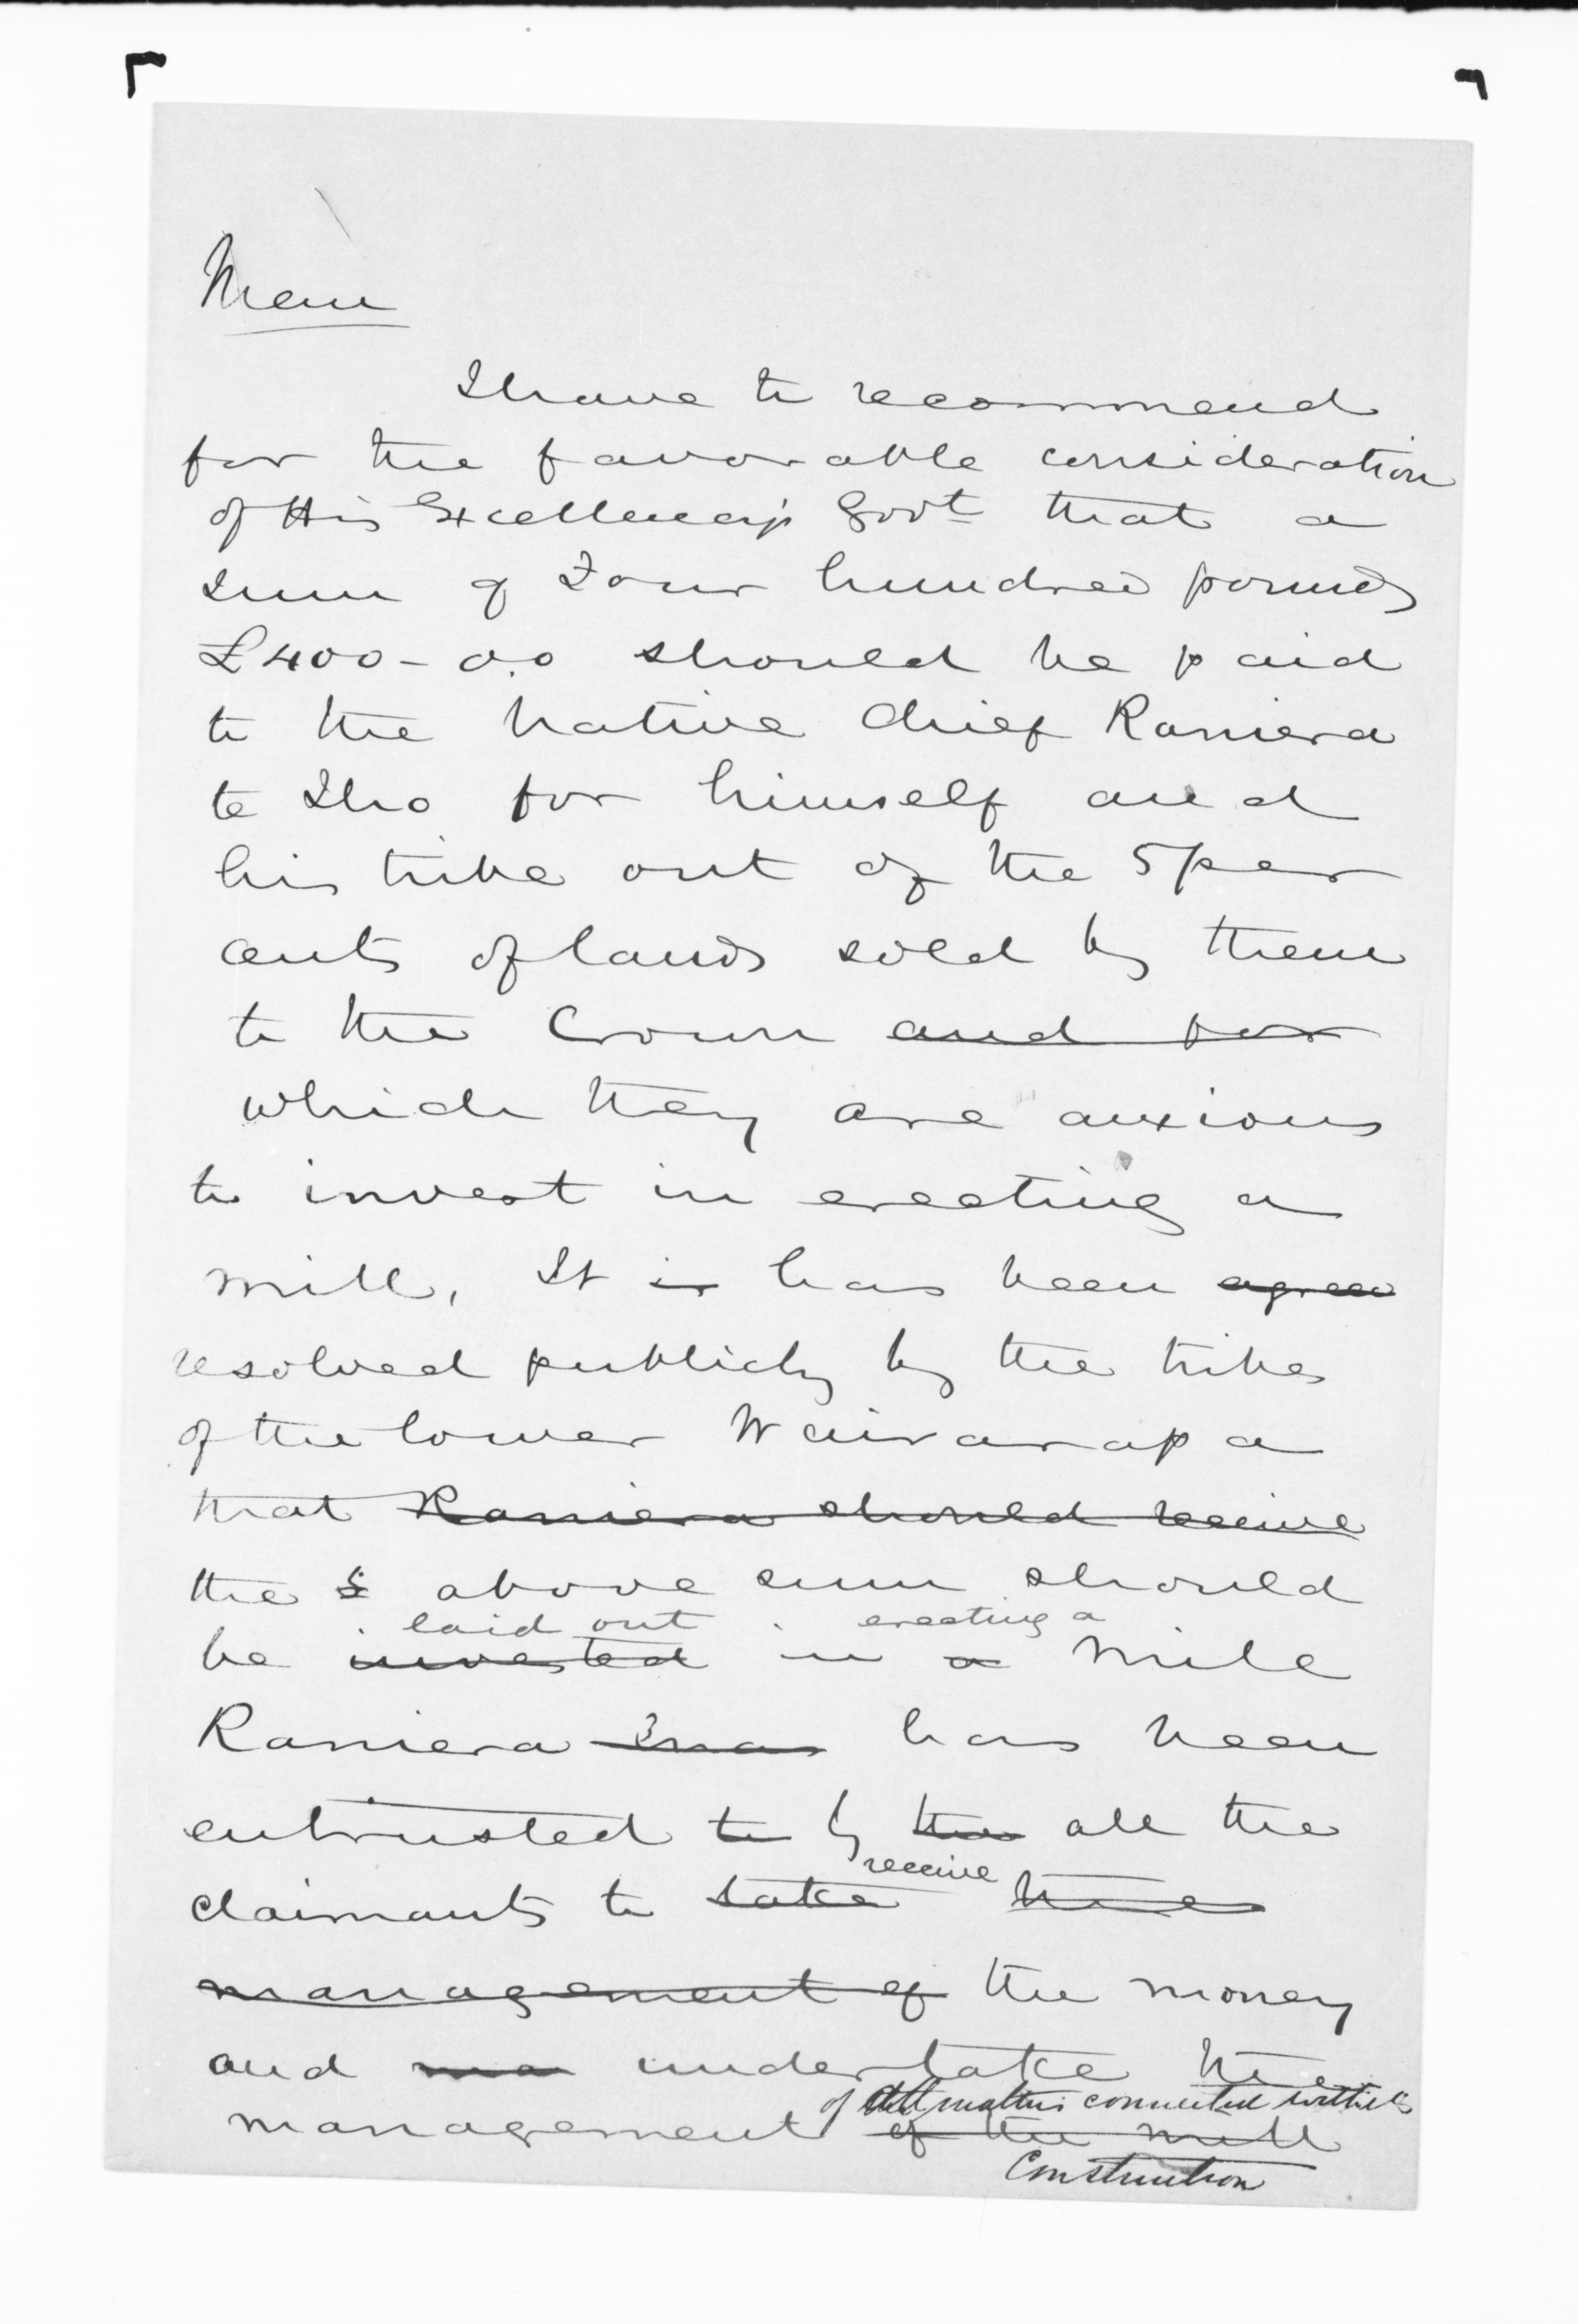 Mem
I have to recommend
for the favorable consideration
of His Excellency's Govt that a
sum of Four hundred pounds
£400-0.0 should be paid
to the Native Chief Raniera
te Iho for himself and
his tribe out of the 5 per
cents of lands sold by them
to the Crown and for
which they are anxious
to invest in erecting a
mill, It is has been agreed
resolved publicly by the tribes
of the lower Wairarapa
that Raniera should receive
the s above sum should
laid out erecting a
be invested in a Mill
Raniera has been
entrusted to by the all the
receive
claimants to take the
management of the money
and ma undertake the
of all matters connected with its
management of the mill
Construction